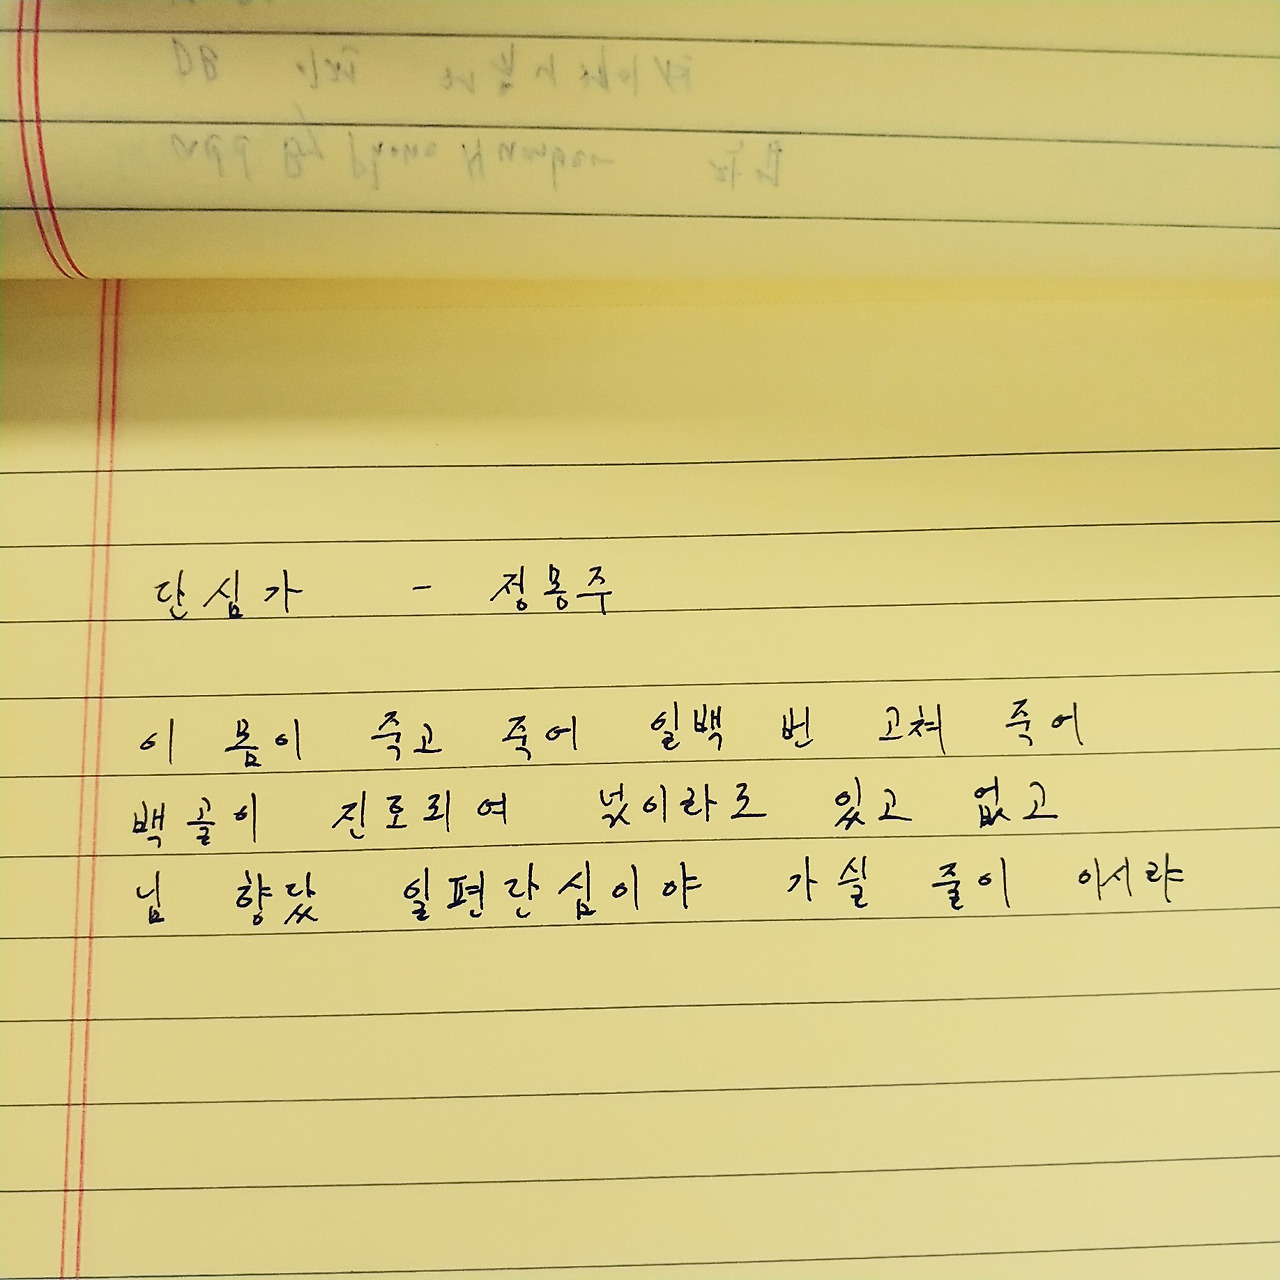 단심가 - 정몽주
이 몸이 죽고 죽어 일백 번 고쳐 죽어
백골이 진토되여 넋이라로 있고 없고
님 향닸 일편단심이야 가실 줄이 아시랴